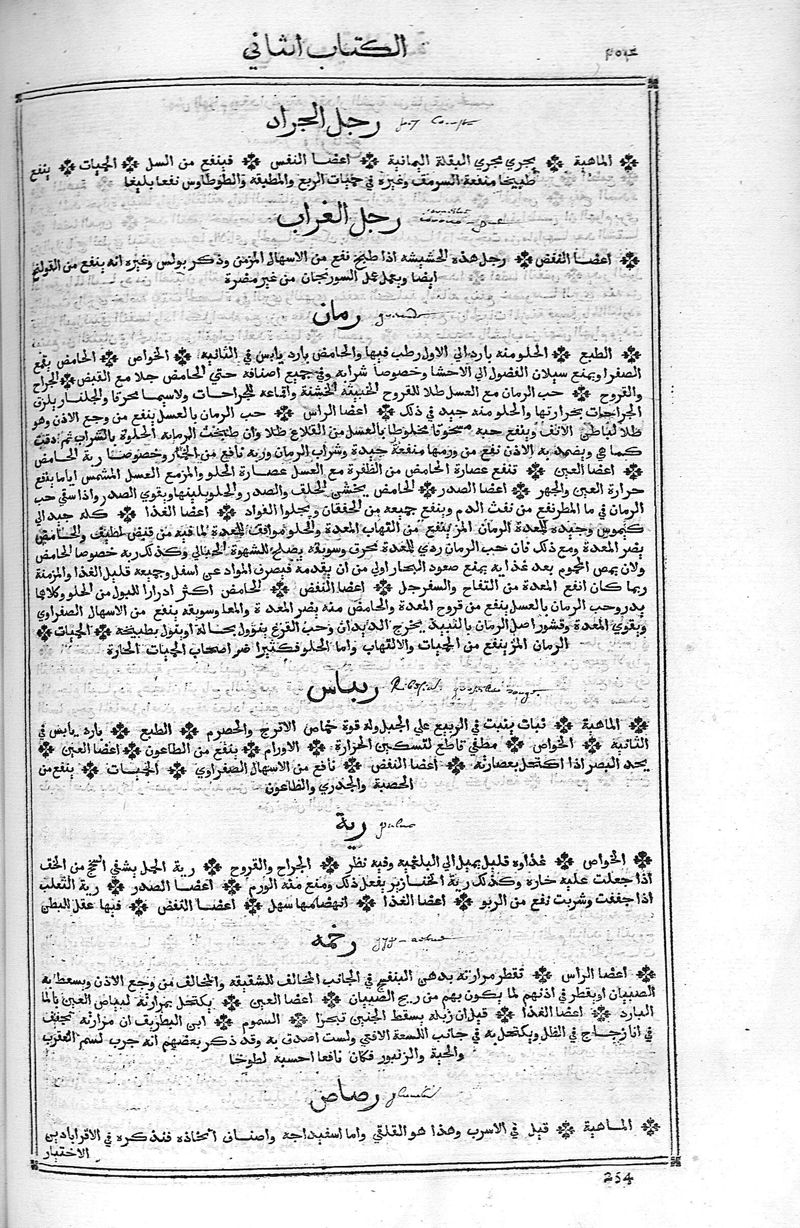 الكتاب الثاني
٢٥٤
رجل الجراد
الماهية ❖ يجري مجري البقلة اليمانية ❖ اعضا النفس ❖ فينفع من السل ❖ الحميات ❖ ينفع
طبيخها منفعة السرمف وغيره في حميات الربع والمطبقه والطوطاوس نفعا بليغا
رجل الغراب
اعضا النفض ❖ رجل هذه الحشيشه اذا طبخ نفع من الاسهال المزمن وذكر بولس وغيره انه ينفع من القولنج
ايضا ويعمل عمل السورنجان من غير مضرة
رمان
الطبع ❖ الحلو منه بارد الي الاول رطب فيها والحامض بارد يابس في الثانيه ❖ الخواص ❖ الحامض يقمع
الصفرا ويمنع سيلان الفضول الي الاحشا وخصوصا شرابه وفي جميع اصنافه حتي الحامض جلا مع القبض ❖ الجراح
والقروح ❖ حب الرمان مع العسل طلا للقروح الخبيثه الخشنة واقماعه للجراحات ولاسيما محرقا والجلنار يلزق
الجراحات بحرارتها والحلو منه جيد في ذلك ❖ اعضا الراس ❖ حب الرمان بالعسل ينفع من وجع الاذن وهو
طلا لباطن الانف وينفع حبه مسحوقا مخلوطا بالعسل من القلاع طلا وان طبخت الرمانه الحلوة بالشراب ثم دقت
كما هي وضمد به الاذن نفع من ورمها منفعة جيدة وشراب الرمان وربه نافع من الخمار وخصوصا ربه الحامض
❖ اعضا العين ❖ تنفع عصارة الحامض من الظفرة مع العسل عصارة الحلو والمز مع العسل المشمس اياما ينفع
حرارة العين والجهر ❖ اعضا الصدر ❖ الحامض يخشن الحلق والصدر والحلو يلينها ويقوي الصدر واذا سقي حب
الرمان في ما المطر نفع من نفث الدم وينفع جميعه من الخفقان ويجلوا الفواد ❖ اعضا الغذا ❖ كله جيد الي
كيموس وجيده للمعدة الرمان المز ينفع من التهاب المعدة والحلو موافق للمعدة لما فيه من قبض لطيف والحامض
يضر المعدة ومع ذلك فان حب الرمان ردي للمعدة محرق وسويقه يصلح للشهوة الحبالي وكذلك ربه خصوصا الحامض
ولان يمص المحموم بعد غذايه يمنع صعود البخار اولي من ان يقدمه فيصرف المواد عن اسفل وجميعه قليل الغذا والمزمنة
ربما كان انفع المعدة من التفاح والسفرجل ❖ اعضا النفض ❖ الحامض اكثر ادرارا للبول من الحلو وكلاهما
يدر وحب الرمان بالعسل ينفع من قروح المعدة والحامض منه يضر المعدة والمعا وسويقه ينفع من الاسهال الصفراوي
ويقوي المعدة وقشور اصل الرمان بالنبيذ يخرج الديدان وحب القرع يتوول بحالة اويتول بطبيخه ❖ الحميات ❖
الرمان المز ينفع من الحميات والالتهاب واما الحلو فكثيرا ضر اصحاب الحميات الحارة
ريباس
الماهية ❖ نبات ينبت في الربيع علي الجبل وله قوة حماض الاترج والحصرم ❖ الطبع ❖ بارد يابس في
الثانية ❖ الخواص ❖ مطفي قاطع لتسكين الحرارة ❖ الاورام ❖ ينفع من الطاعون ❖ اعضا العين ❖
يحد البصر اذا اكتحل بعصارته ❖ اعضا النفض ❖ نافع من الاسهال الصفراوي ❖ الحميات ❖ ينفع من
الحصبة والجدري والطاعون
رية
الخواص ❖ غذاوه قليل يميل الي البلغميه وفيه نظر ❖ الجراح والقروح ❖ رية الحمل يشفي السحج من الخف
اذا جعلت عليه حارة وكذلك رية الخنازير يفعل ذلك ومنع منه الورم ❖ اعضا الصدر ❖ رية الثعلب
اذا جففت وشربت نفع من الربو ❖ اعضا الغذا ❖ انهضامها سهل ❖ اعضا النفض ❖ فيها عقل للبطن
رخمه
اعضا الراس ❖ تقطر مرارته بدهن البنفسج في الجانب المخالف للشقيقه والمخالف من وجع الاذن ويسعط به
الصبيان او يقطر في اذنهم لما يكون بهم من ريح الصبيان ❖ اعضا العين ❖ يكتحل بمرارته لبياض العين بالما
البارد ❖ اعضا الغذا ❖ قيل ان زبله يسقط الجنين تبخرا ❖ السموم ❖ ابن البطريف ان مرارته تجفف
في انا زجاج في الظل ويكتحل به في جانب اللسعة الافعي ولست اصدق به وقد ذكر بعضهم انه جرب لسم العقرب
والحية والزنبور فكان نافعا احسبه لطوخا
رصاص
الماهية ❖ قيل في الاسرب وهذا هو القلقي واما اسفيداجه واصناف اتخاذه فنذكره في الاقراباذين
الاختيار
254